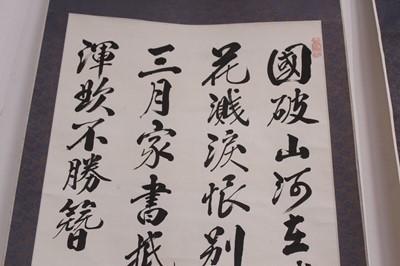 國破山河在
花濺淚恨別
三月家書抵
渾欲不勝簪